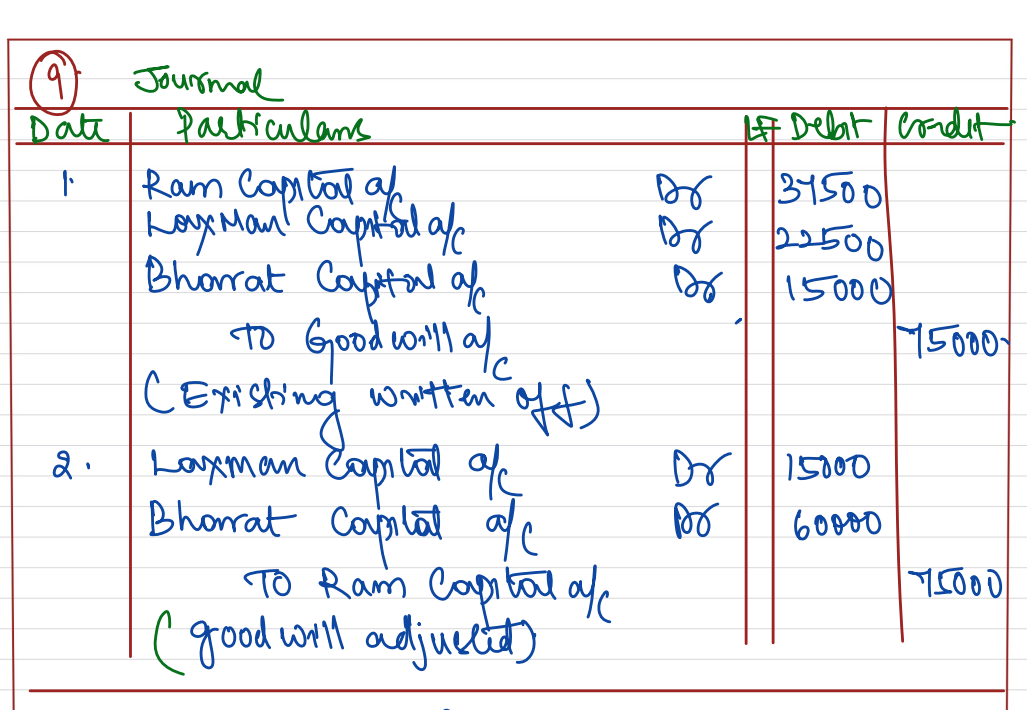 9 Journal
Date Particulars LF Debit Credit
1. Ram Capital a/c Dr 37500
Laxman Capital a/c Dr 22500
Bharat Capital a/c Dr 15000
To Goodwill a/c 75000
(Existing written off)
2. Laxman Capital a/c Dr 15000
Bharat Capital a/c Dr 60000
To Ram Capital a/c 75000
(goodwill adjusted)